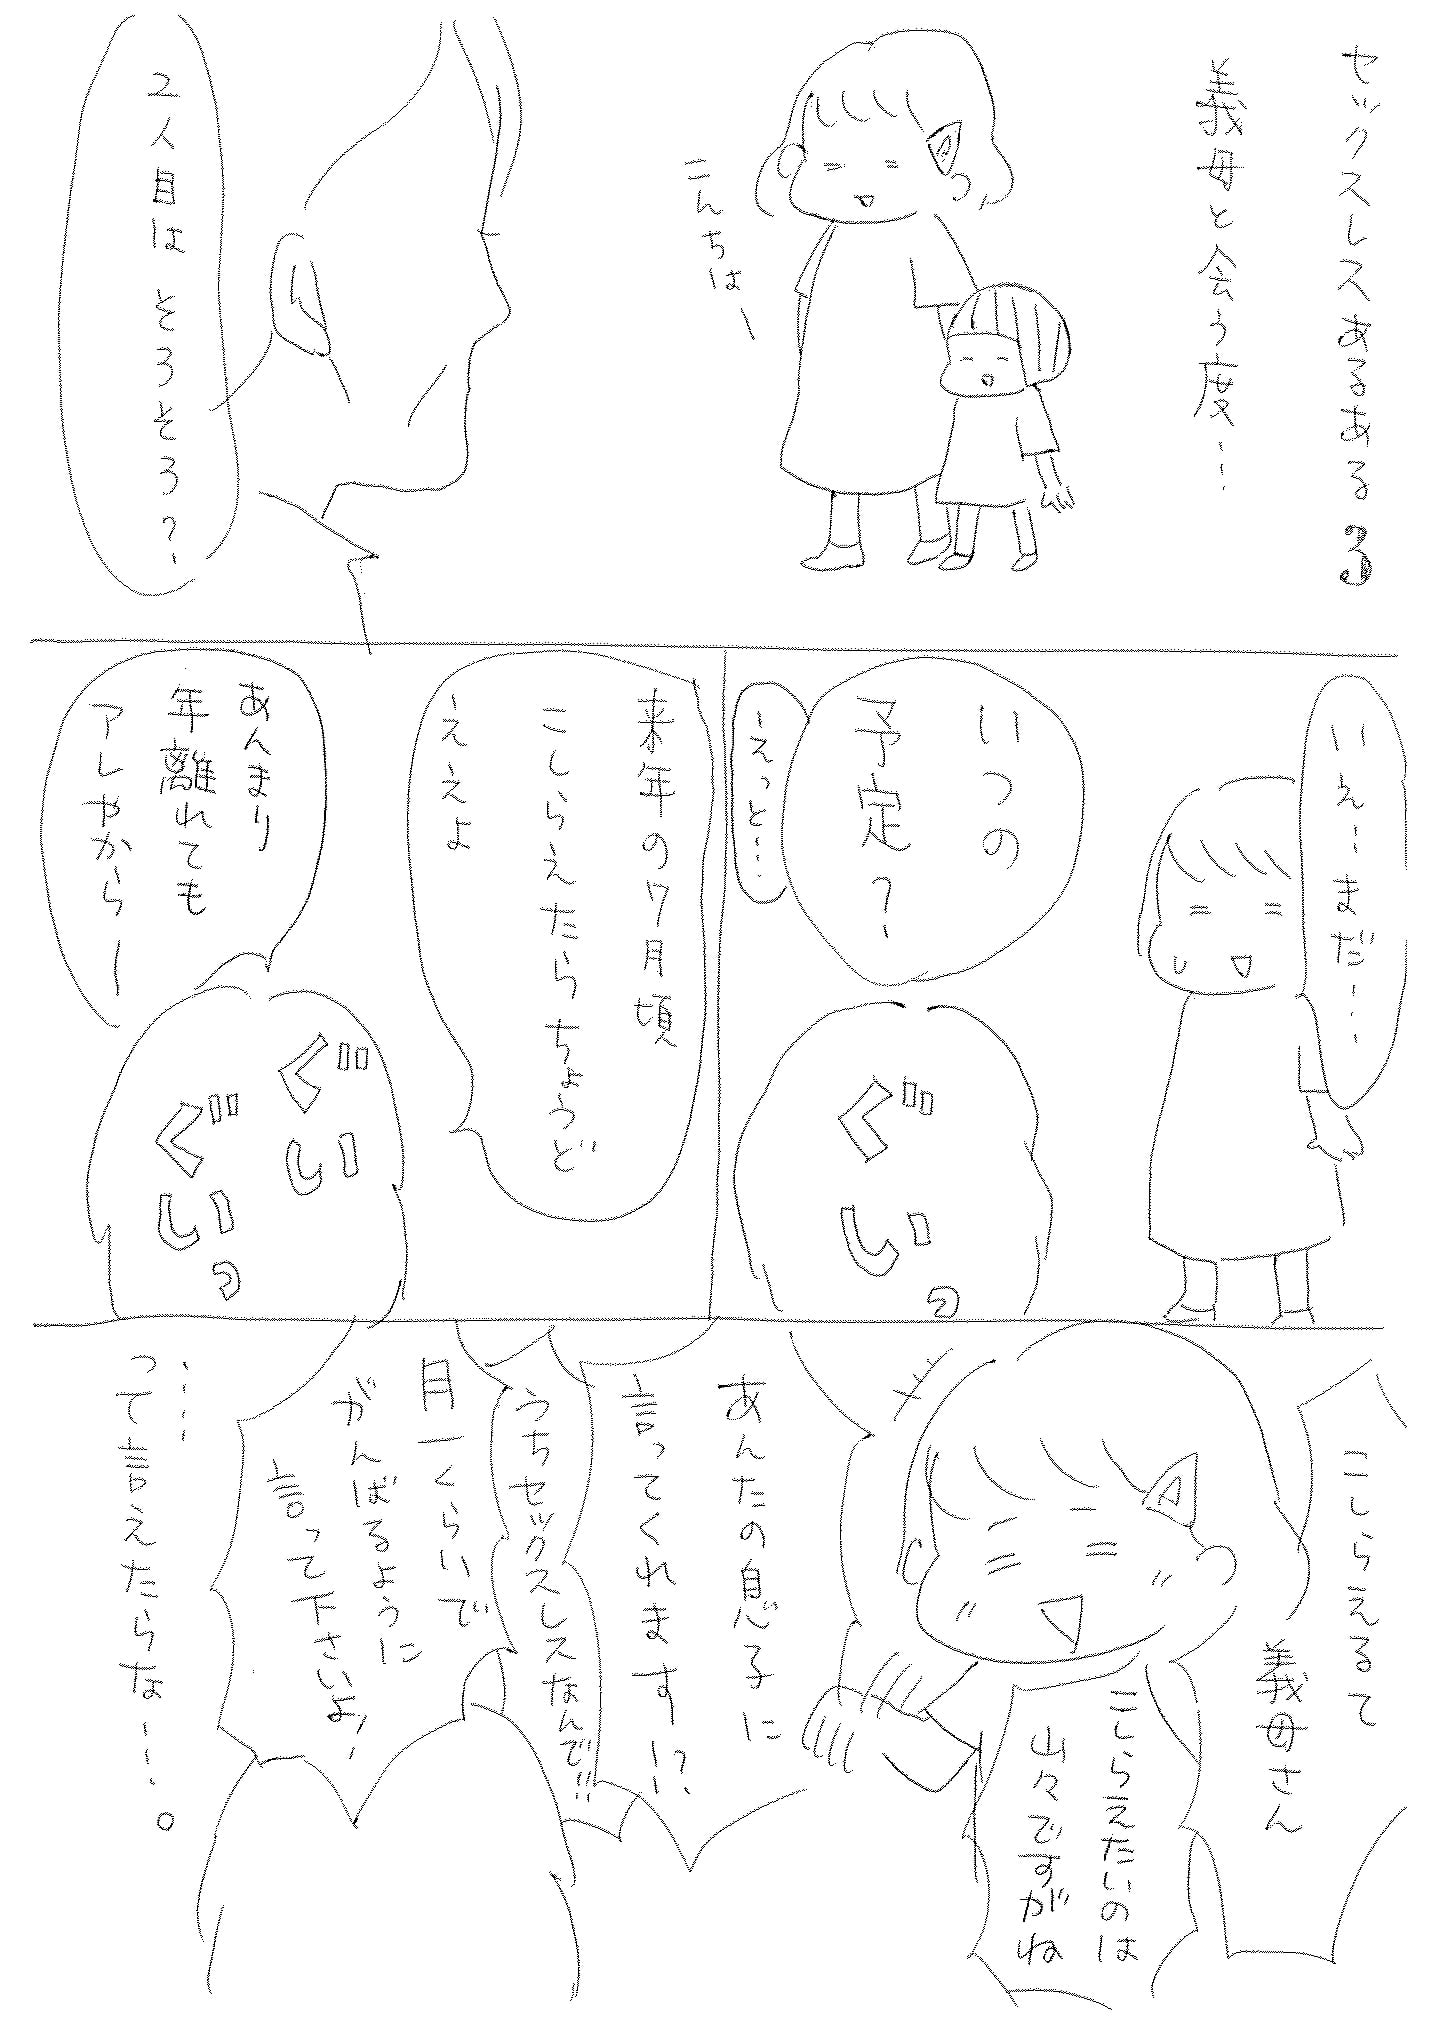 セックスレスあるある③
義母と会う度…
こんちはー
２人目はそろそろ？
いえ…まだ…
いつの
予定？
えっと…
ぐいっ
来年の７月頃
こしらえたらちょうど
ええよ
あんまり
年離れても
アレやからー
ぐい
ぐいっ
こしらえるて
義母さん
こしらえたいのは
山々ですがね
あんたの息子に
言ってくれます!?
うちセックスレスなんで!!
月一くらいで
がんばるように
言って下さいよ！
……
って言えたらな…。